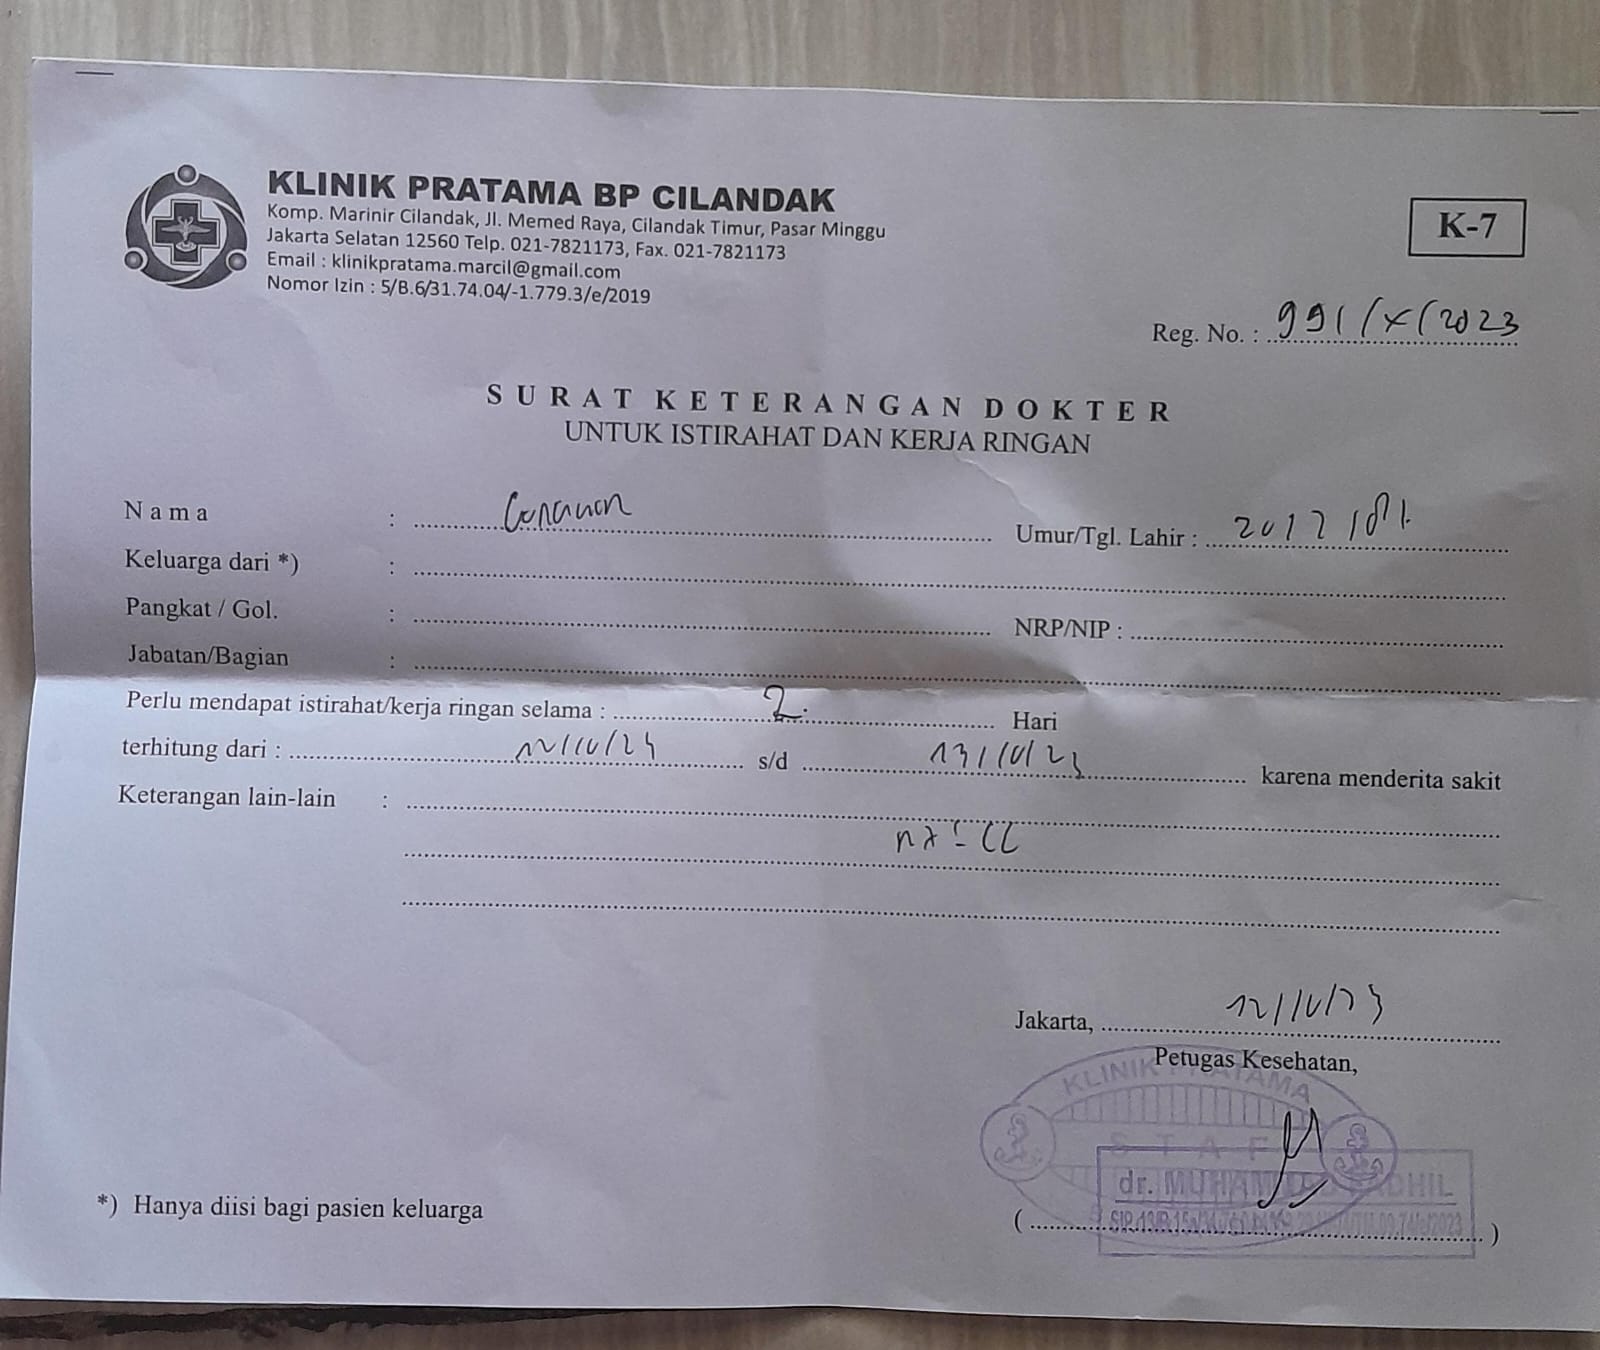 KLINIK PRATAMA BP CILANDAK
Komp. Marinir Cilandak, Jl. Memed Raya, Cilandak Timur, Pasar Minggu
Jakarta Selatan 12560 Telp. 021-7821173, Fax. 021-7821173
Email : klinikpratama.marcil@gmail.com
Nomor Izin : 5/B.6/31.74.04/-1.779.3/e/2019
K-7
Reg. No. : 991/X/2023
SURAT KETERANGAN DOKTER
UNTUK ISTIRAHAT DAN KERJA RINGAN
Nama :
Umur/Tgl. Lahir :
Keluarga dari *) :
Pangkat / Gol. :
NRP/NIP :
Jabatan/Bagian :
Perlu mendapat istirahat/kerja ringan selama : 2 Hari
terhitung dari : 12/10/23 s/d 13/10/23 karena menderita sakit
Keterangan lain-lain :
Jakarta, 12/10/23
Petugas Kesehatan,
KLINIK PRATAMA
STAF
dr. MUHAMMAD
*) Hanya diisi bagi pasien keluarga